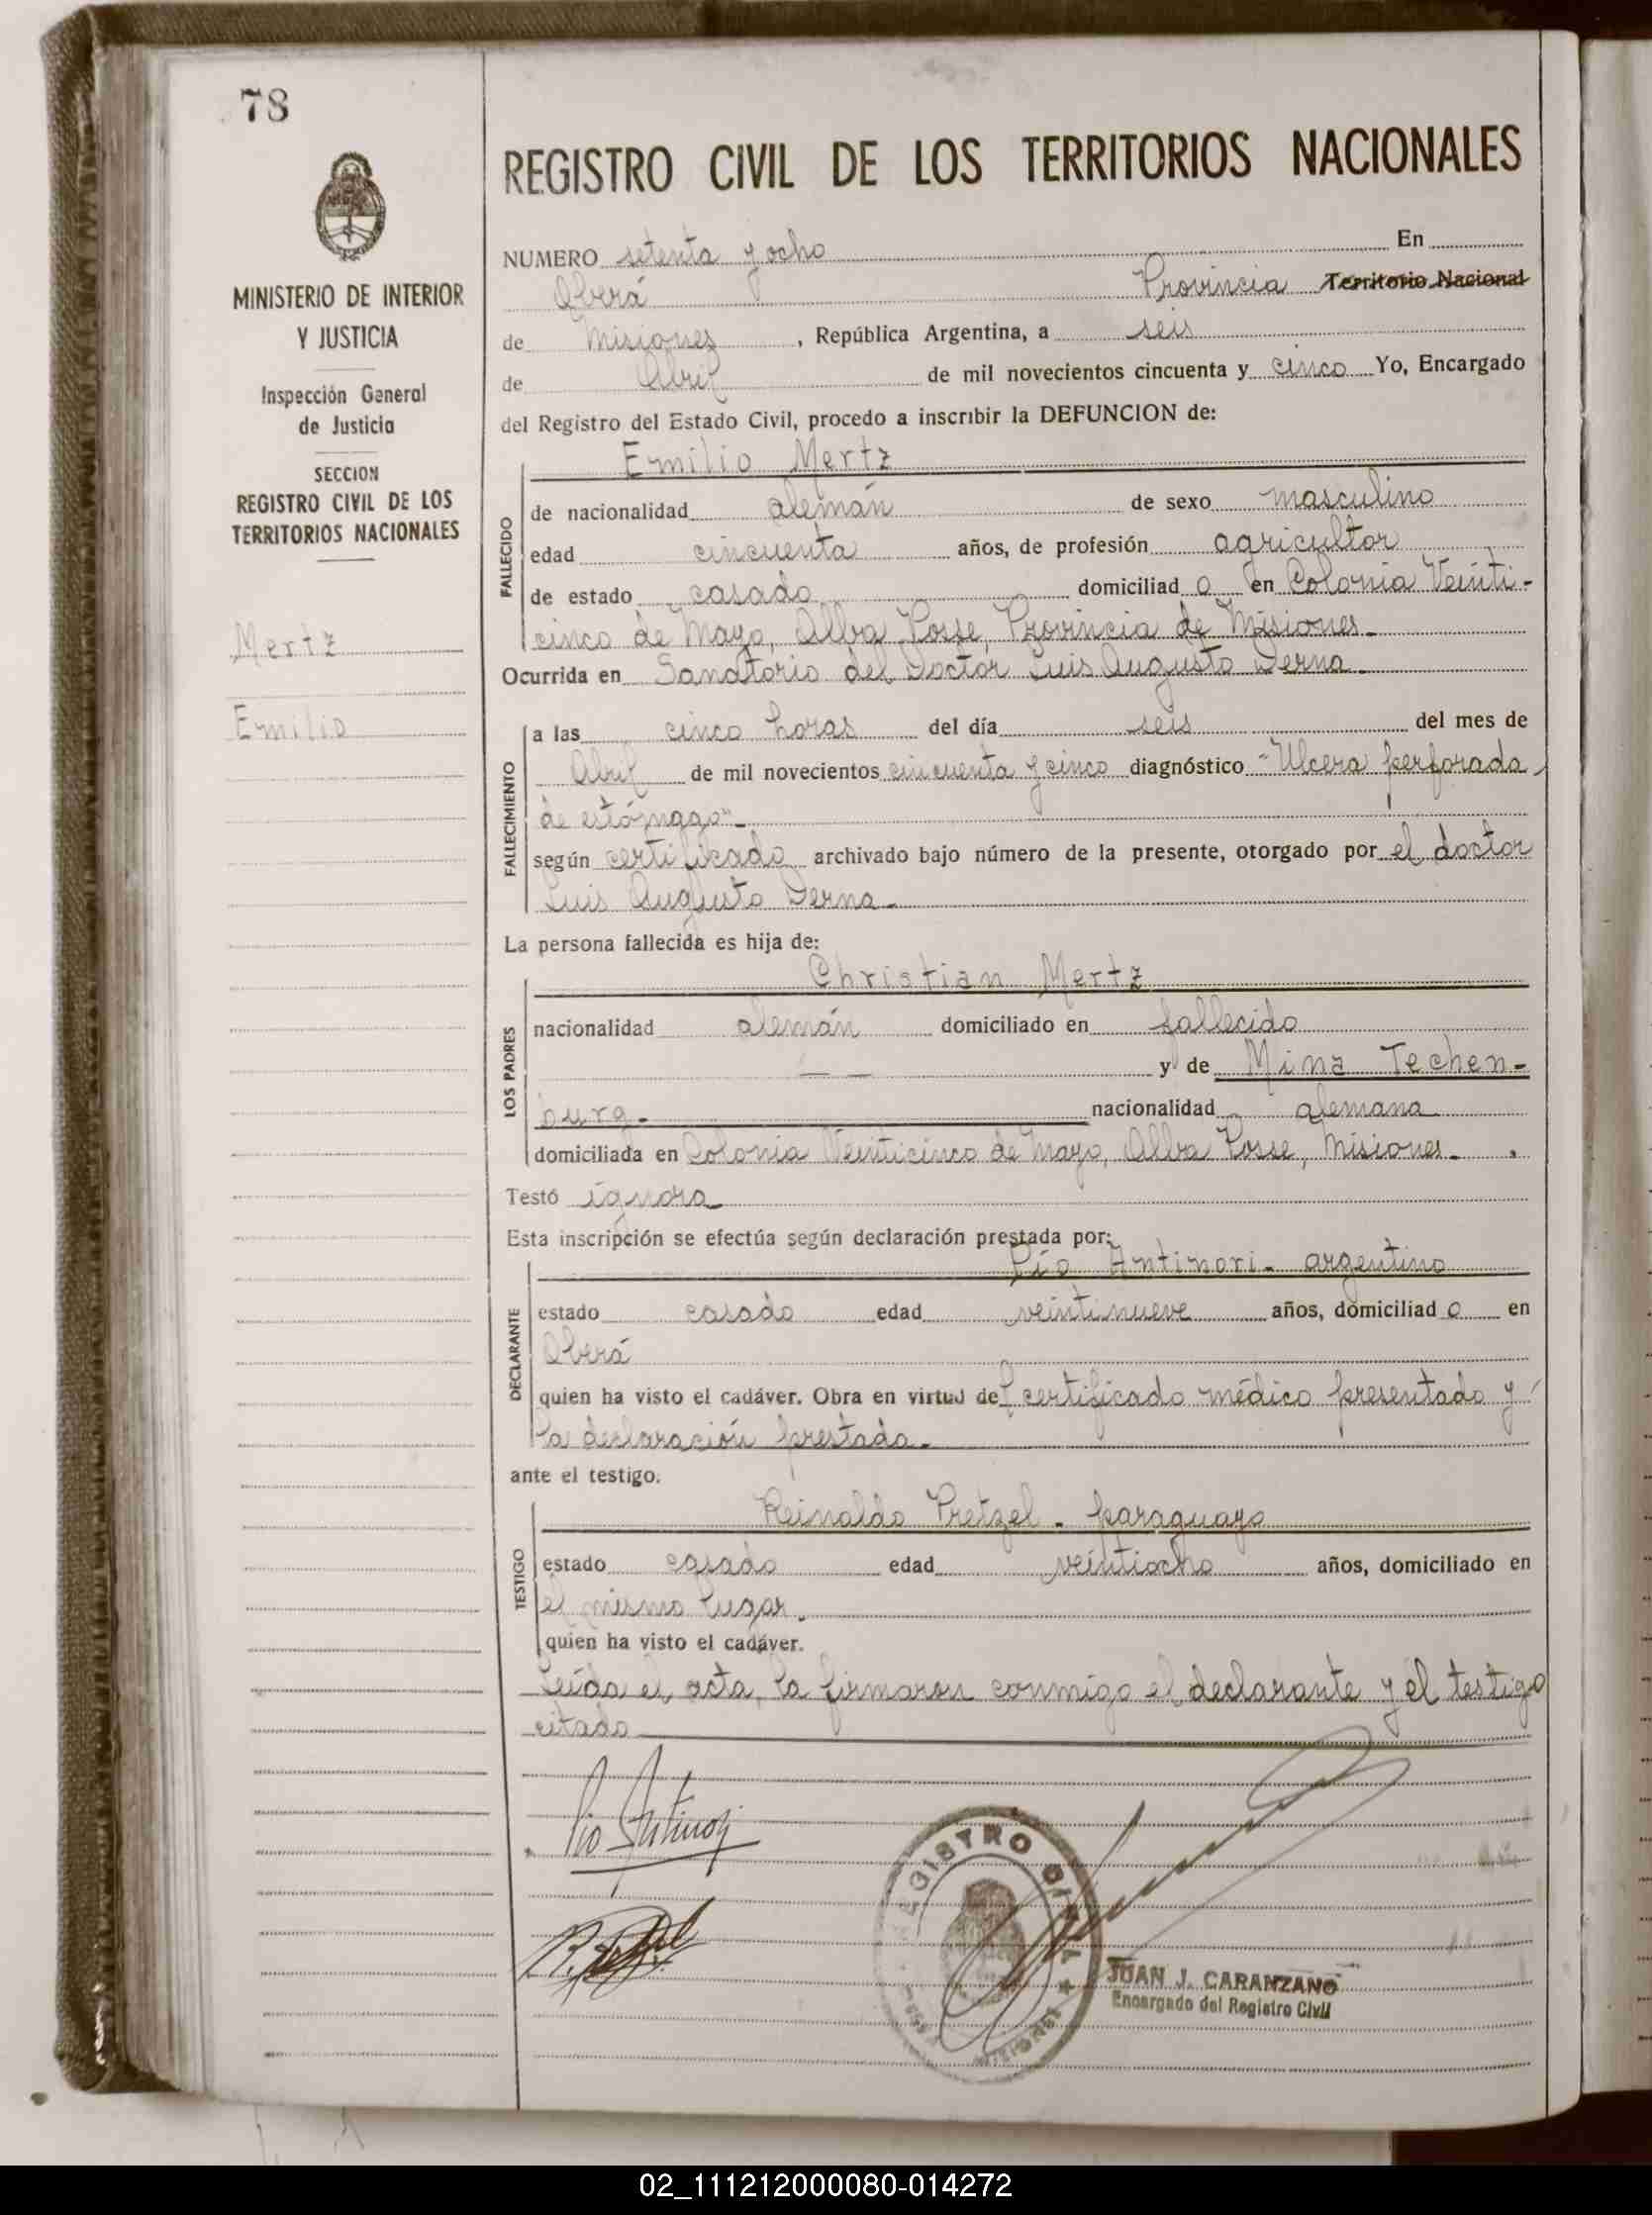 78
MINISTERIO DE INTERIOR
Y JUSTICIA
Inspección General
de Justicia
SECCION
REGISTRO CIVIL DE LOS
TERRITORIOS NACIONALES
Mertz
Emilio
REGISTRO CIVIL DE LOS TERRITORIOS NACIONALES
NUMERO setenta y ocho En
Oberá Provincia Territorio Nacional
de Misiones, República Argentina, a seis
de Abril de mil novecientos cincuenta y cinco Yo, Encargado
del Registro del Estado Civil, procedo a inscribir la DEFUNCION de:
Emilio Mertz
FALLECIDO
de nacionalidad alemán de sexo masculino
edad cincuenta años, de profesión agricultor
de estado casado domiciliad o en Colonia Veinti-
cinco de Mayo, Alba Posse, Provincia de Misiones.-
Ocurrida en Sanatorio del Doctor Luis Augusto Derna.-
FALLECIMIENTO
a las cinco horas del día seis del mes de
Abril de mil novecientos cincuenta y cinco diagnóstico "Ulcera perforada
de estómago".-
según certificado archivado bajo número de la presente, otorgado por el doctor
Luis Augusto Derna.-
La persona fallecida es hija de:
Christian Mertz
LOS PADRES
nacionalidad alemán domiciliado en fallecido
— — y de Mina Techen-
burg.-
nacionalidad alemana
domiciliada en Colonia Veinticinco de Mayo, Alba Posse, Misiones.- .
Testó ignora
Esta inscripción se efectúa según declaración prestada por:
Pío Antinori.- argentino
DECLARANTE
estado casado edad veintinueve años, domiciliad o en
Oberá
quien ha visto el cadáver. Obra en virtud del certificado médico presentado y
la declaración prestada.-
ante el testigo.
Reinaldo Pretzel.- paraguayo
TESTIGO
estado casado edad veintiocho años, domiciliado en
el mismo lugar.-
quien ha visto el cadáver.
Leída el acta, la firmaron conmigo el declarante y el testigo
citado
Pio Antinori
REGISTRO CIVIL
MISIONES
JUAN J. CARANZANO
Encargado del Registro Civil
02_111212000080-014272